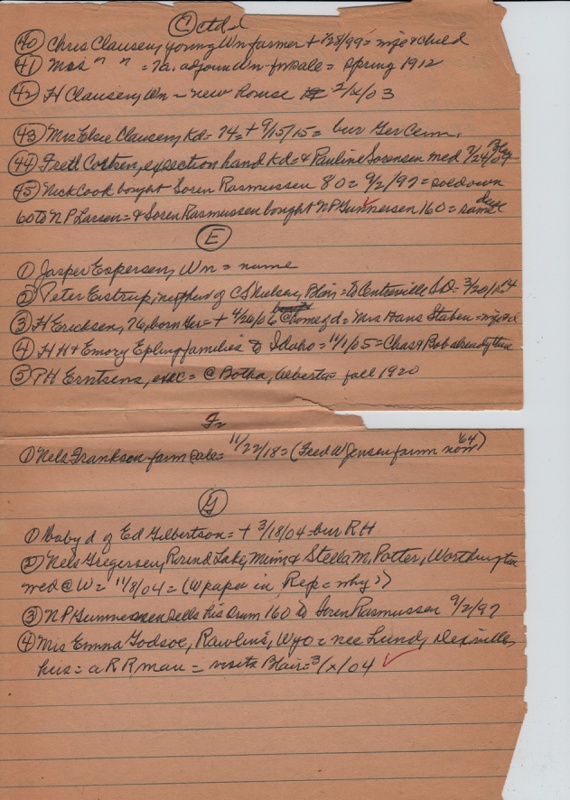 (C) ctd
(40) Chris Clausen, young Wn farmer + 1/28/99 = wife & child
(41) Mrs " " = 7a. adjoin Wn - for sale = spring 1912
(42) H Clausen, Wn - new house 2/x/03
(43) Mrs Elsie Clausen, Kd = 74 + 9/15/15 = bur Ger Cem.
(44) Fred section hand Kd = & Pauline Sorensen med 2/24/04 Blair
(45) Nick Cook bought Soren Rasmussen 80 = 9/2/97 = sold own
60 to N P Larsen = & Soren Rasmussen bought NP Gunnersen 160 = same date
(E)
(1) Jasper Espersen, Wn = name
(2) Peter Eistrup, nephew of C Skulsen, Blair, = to Centreville S D = 3/20/
(3) H Ericksen, 76, born Ger = + 4/26/06 @ home of d = Mrs Hans Staben = wife
(4) H H & Emory Epling families to Idaho = 11/1/05 = Chas & Bob already there
(5) PH Erntsens, = @ Botha, Alberta = fall 1920
F
(1) Nels Frankson farm sale = 11/22/18 = (Fred W Jensen farm now '64)
(G)
(1) Baby d of Ed Gilbertson = + 3/18/04 = bur R H
(2) Nels Gregersen, Round Lake, Minn & Stella M. Potter, Worthington
wed @ W = 11/8/04 = (W paper in Rep = why?)
(3) NP Gunnersen sells his 160 to Soren Rasmussen 9/2/97
(4) Mrs Emma Godsoe, Rawlins, Wyo = nee Lund,
hus = a R R man = visits Blair = 3/x/04